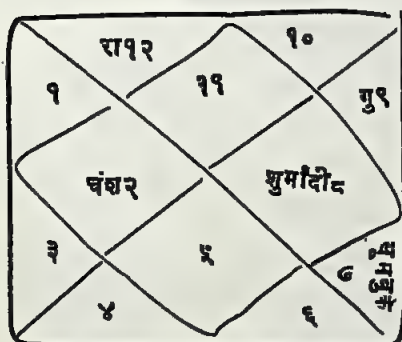 रा१२
१०
१
११
गु९
चंश२
शुर्मांदी८
३
५
७
४
६